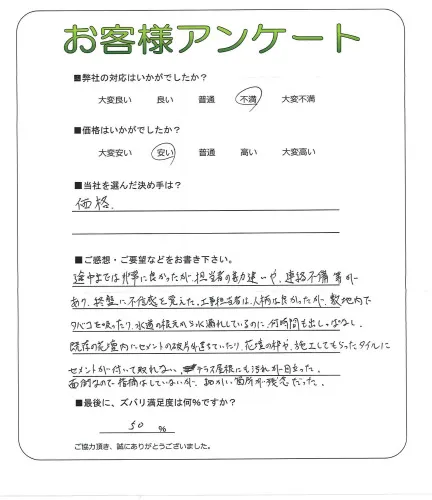 お客様アンケート
■弊社の対応はいかがでしたか？
大変良い 良い 普通 不満 大変不満
■価格はいかがでしたか？
大変安い 安い 普通 高い 大変高い
■当社を選んだ決め手は？
価格.
■ご感想・ご要望などをお書き下さい。
途中までは非常に良かったが、担当者の勘違いや、連絡不備等が
あり、終盤に不信感を覚えた。工事担当者は、人柄は良かったが、敷地内で
タバコを吸ったり、水道の根元から水漏れしているのに、何時間も出しっぱなし。
既存の花壇内にセメントの破片が落ちていたり、花壇の枠や、施工してもらったタイルに
セメントが付いて取れない。テラス屋根にも汚れが目立った。
面倒なので指摘はしていないが、細かい箇所が残念だった。
■最後に、ズバリ満足度は何%ですか？
50 %
ご協力頂き、誠にありがとうございました。